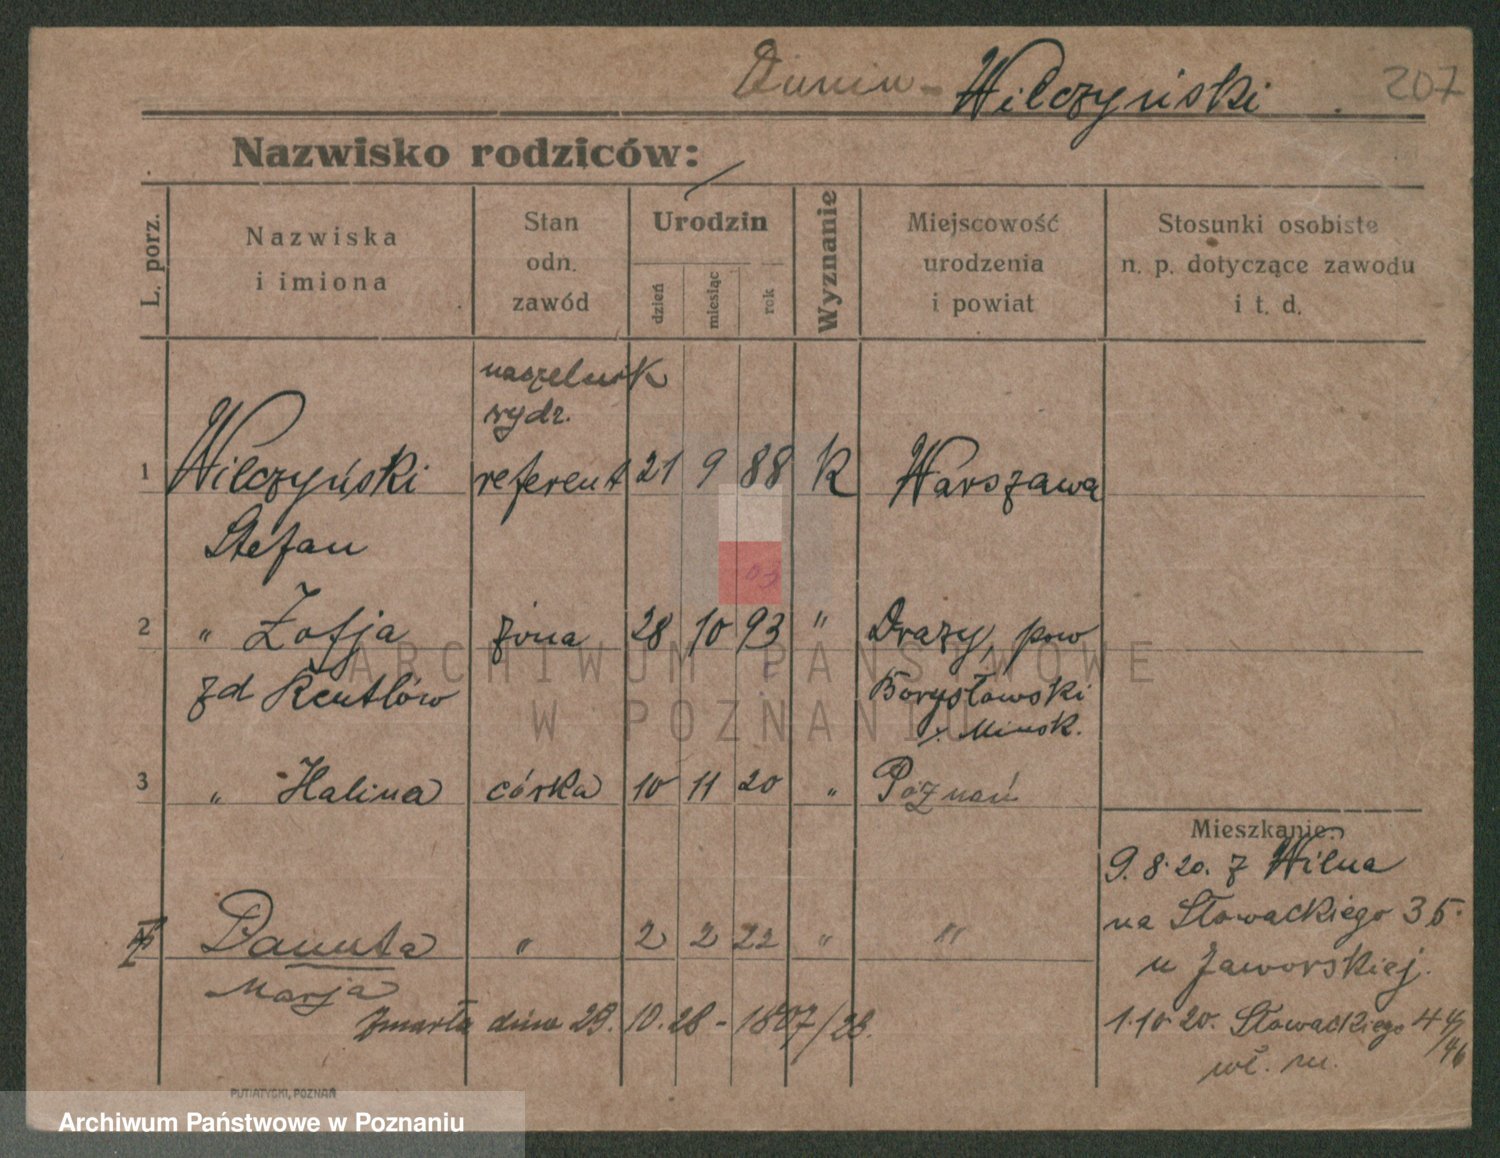 Dunin - Wilczyński . 207
Nazwisko rodziców:
L. porz.
Nazwiska
i imiona
Stan
odn.
zawód
Urodzin
dzień
miesiąc
rok
Wyznanie
Miejscowość
urodzenia
i powiat
Stosunki osobiste
n. p. dotyczące zawodu
i t. d.
naczelnik
wydz.
1 Wilczyński referent 21 9 88 K Warszawa
Stefan
03
2 " Zofja żona 28 10 93 " Drazy, pow
zd
Borysławski
Minsk.
3 " Halina córka 10 11 20 " Poznań
Danuta " 2 2 22 " "
Marja
zmarła dnia 29. 10. 28 - 1807/28.
Mieszkanie:
9.8.20. z Wilna
na Słowackiego 35.
u Jaworskiej.
1.10 20. Słowackiego 44/46
wł. m.
PUTIATYCKI, POZNAŃ
ARCHIWUM PAŃSTWOWE
W POZNANIU
Archiwum Państwowe w Poznaniu